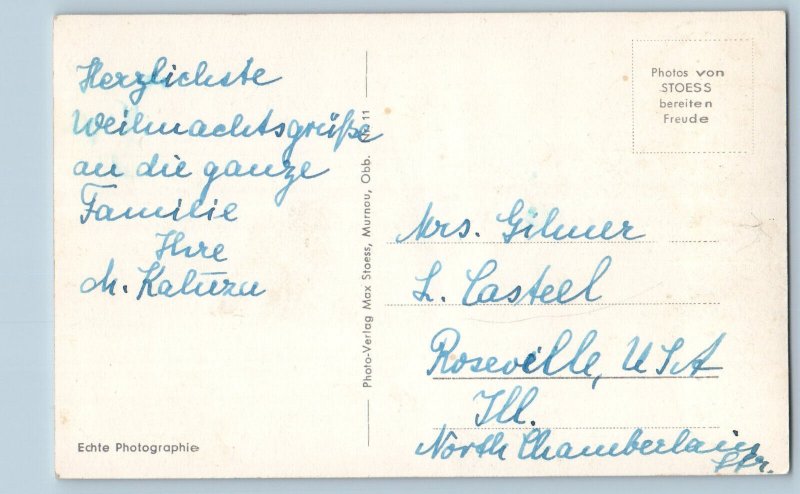 Herzlichste
Weihnachtsgrüße
an die ganze
Familie
Ihre
M. Kaluza
Echte Photographie
Photo-Verlag Max Stoess, Murnau, Obb. 11
Photos von
STOESS
bereiten
Freude
Mrs. Gilmer
L. Casteel
Roseville, USA
Ill.
North Chamberlain
Str.